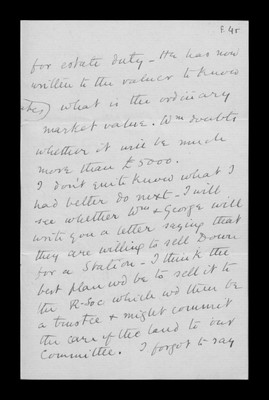 f. 45
for estate duty – He has now
written to the valuer to know
what is the ordinary
market value. Wm doubts
whether it will be much
more than £5000.
I don't quite know what I
had better do next – I will
see whether Wm & George will
write you a letter saying that
they are willing to sell Down
for a Station – I think the
best plan wd be to sell it to
the R-Soc which wd then be
a trustee & might commit
the care of the land to our
Committee. I forgot to say